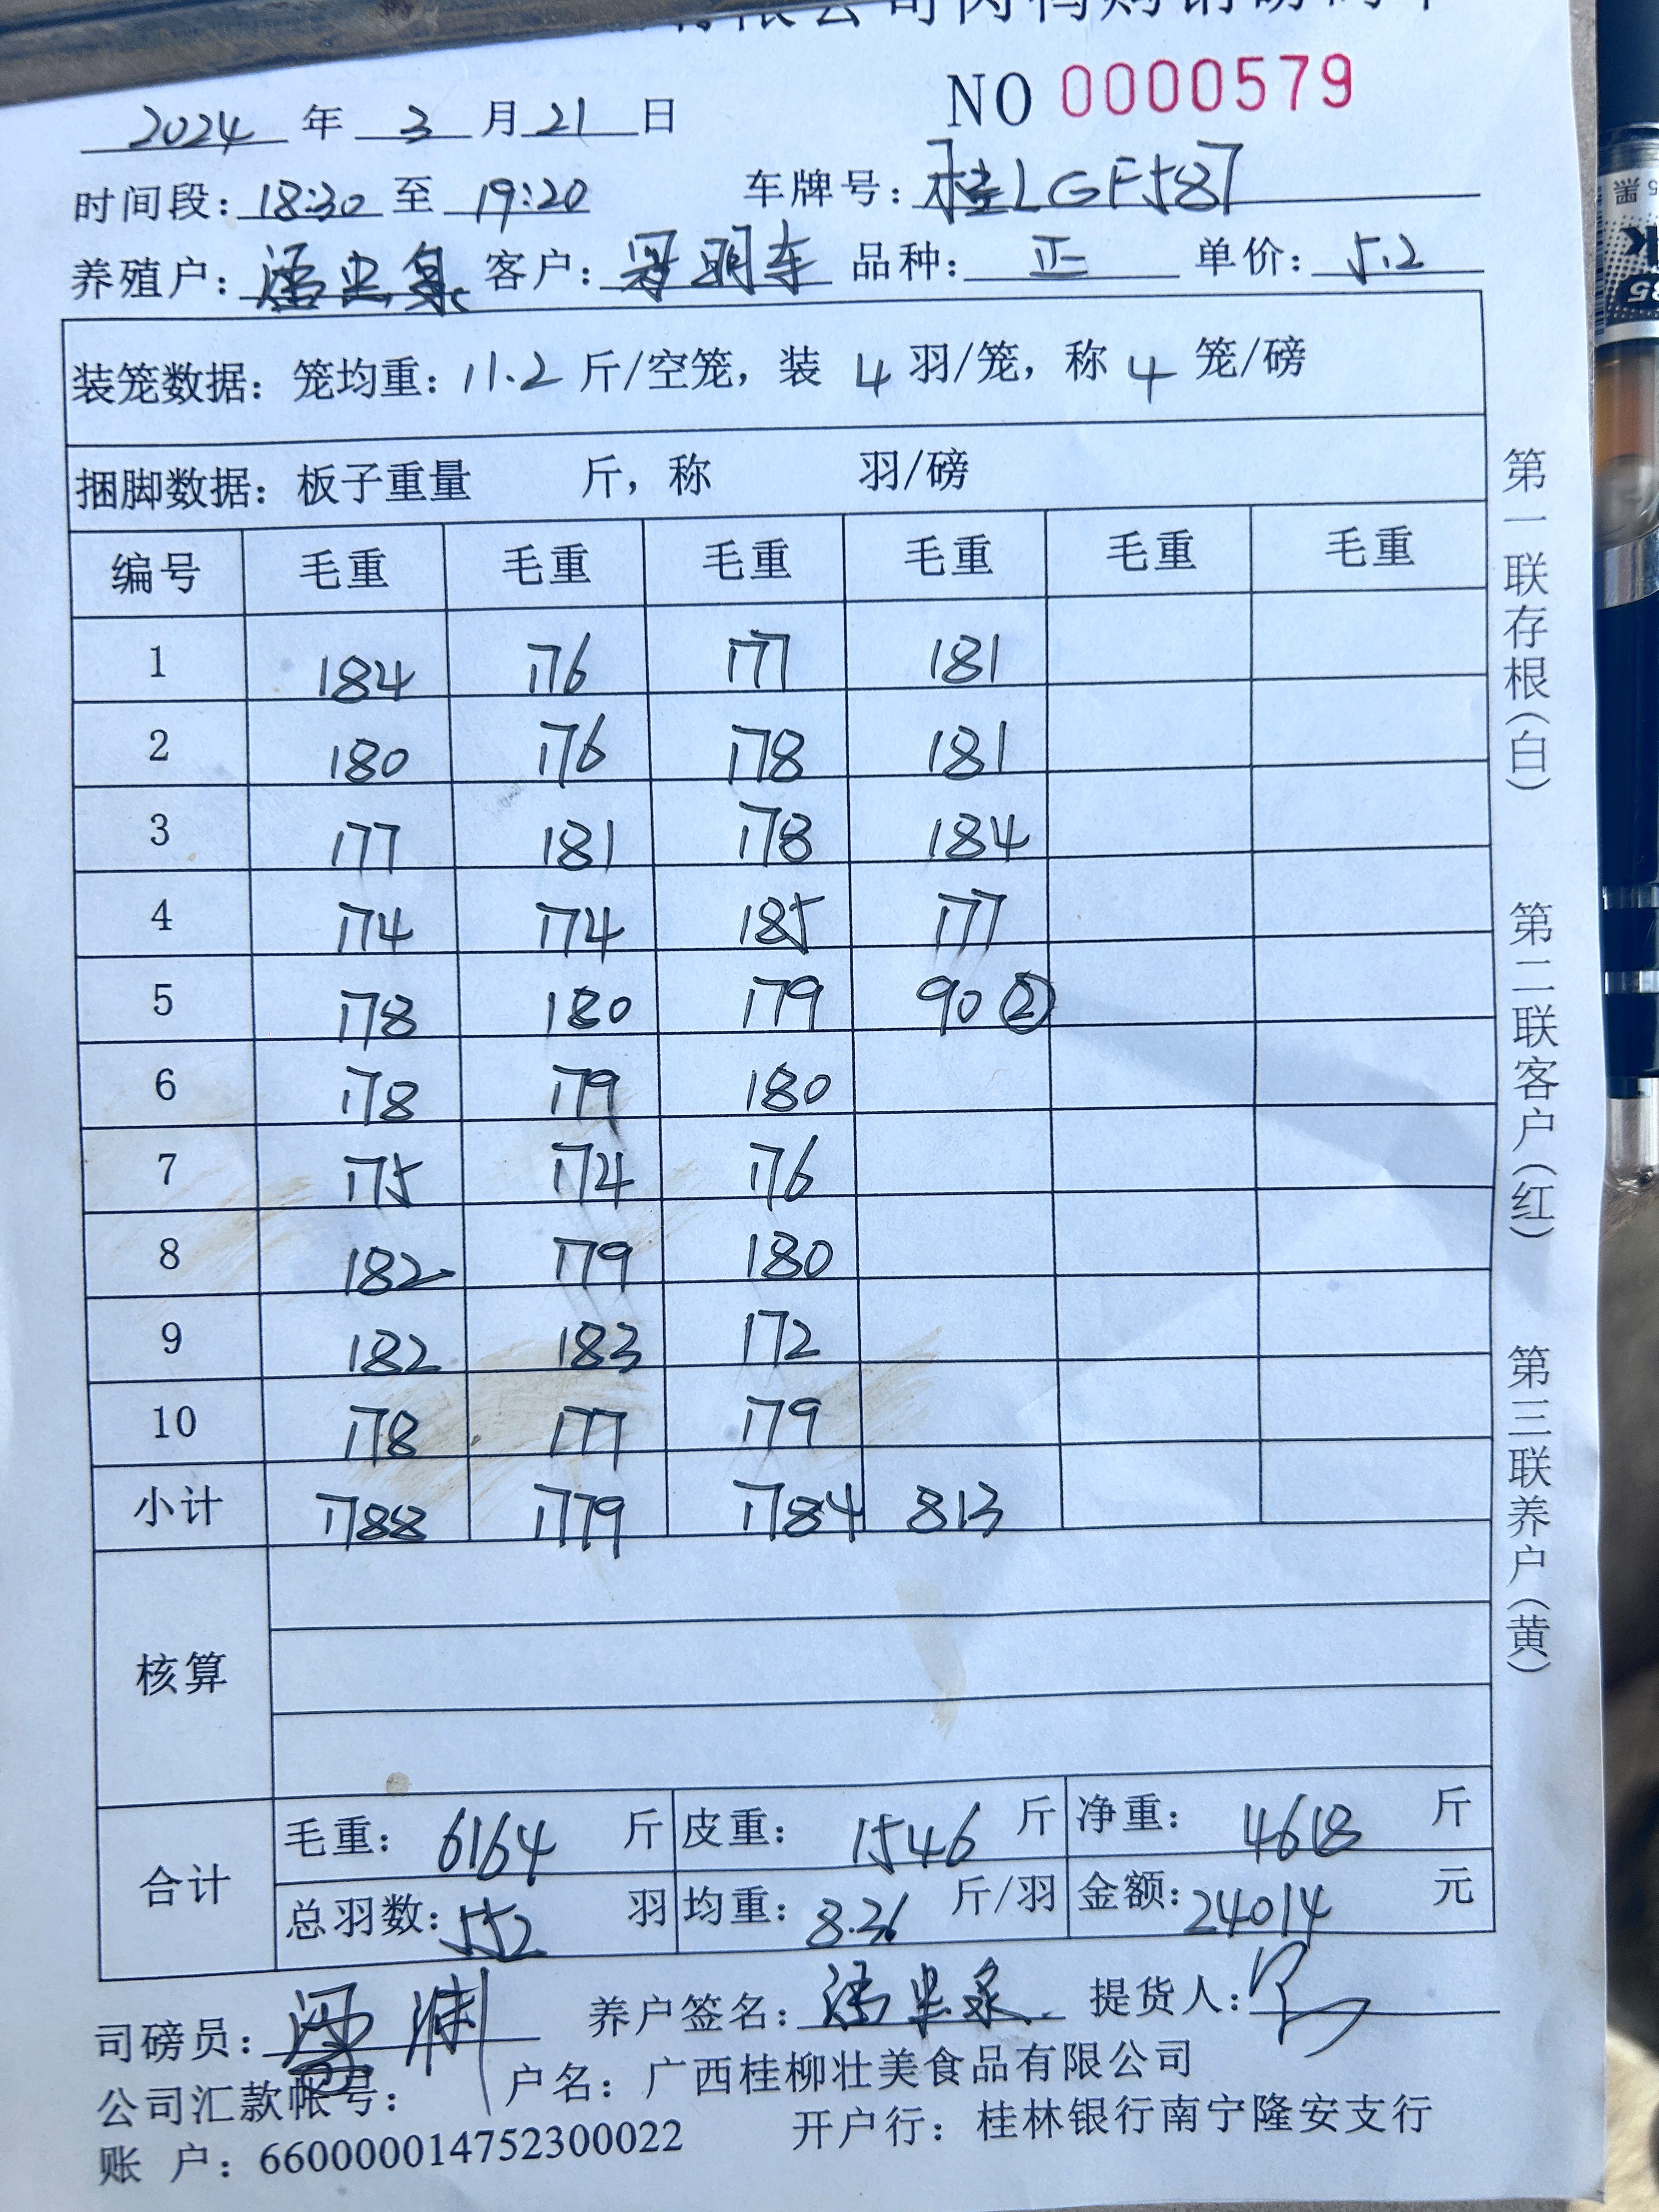 有限公司肉鸭购销磅码单
NO 0000579
2024 年 3 月 21 日
时间段: 18:30 至 19:20 车牌号: 桂LGF587
养殖户: 潘忠泉 客户: 明车 品种: 正 单价: 5.2
装笼数据: 笼均重: 11.2 斤/空笼, 装 4 羽/笼, 称 4 笼/磅
捆脚数据: 板子重量 斤, 称 羽/磅
编号 毛重 毛重 毛重 毛重 毛重 毛重
1 184 176 177 181
2 180 176 178 181
3 177 181 178 184
4 174 174 185 177
5 178 180 179 90 ②
6 178 179 180
7 175 174 176
8 182 179 180
9 182 183 172
10 178 177 179
小计 1788 1779 1784 813
核算
合计
毛重: 6164 斤 皮重: 1546 斤 净重: 4618 斤
总羽数: 552 羽 均重: 8.36 斤/羽 金额: 24014 元
司磅员: 养户签名: 潘忠泉 提货人:
公司汇款帐号: 户名: 广西桂柳壮美食品有限公司
账 户: 660000014752300022 开户行: 桂林银行南宁隆安支行
第一联存根(白)
第二联客户(红)
第三联养户(黄)